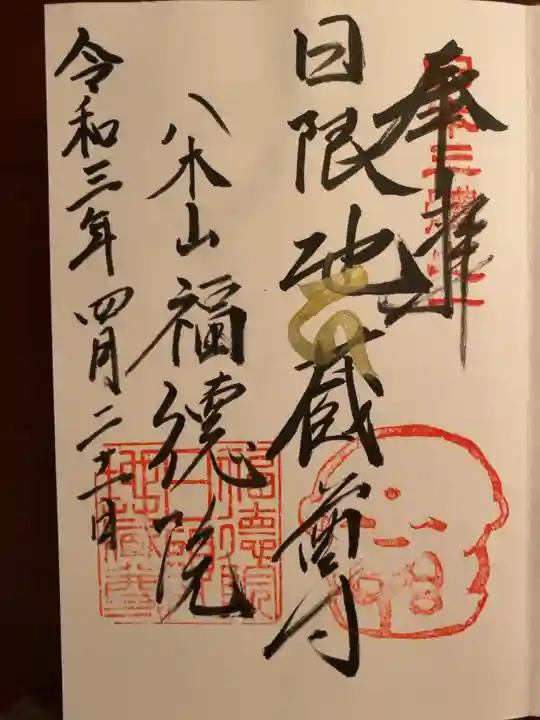 奉拝
日限地蔵尊
八木山 福徳院
令和三年 四月二十一日
福徳院
日限
地蔵尊